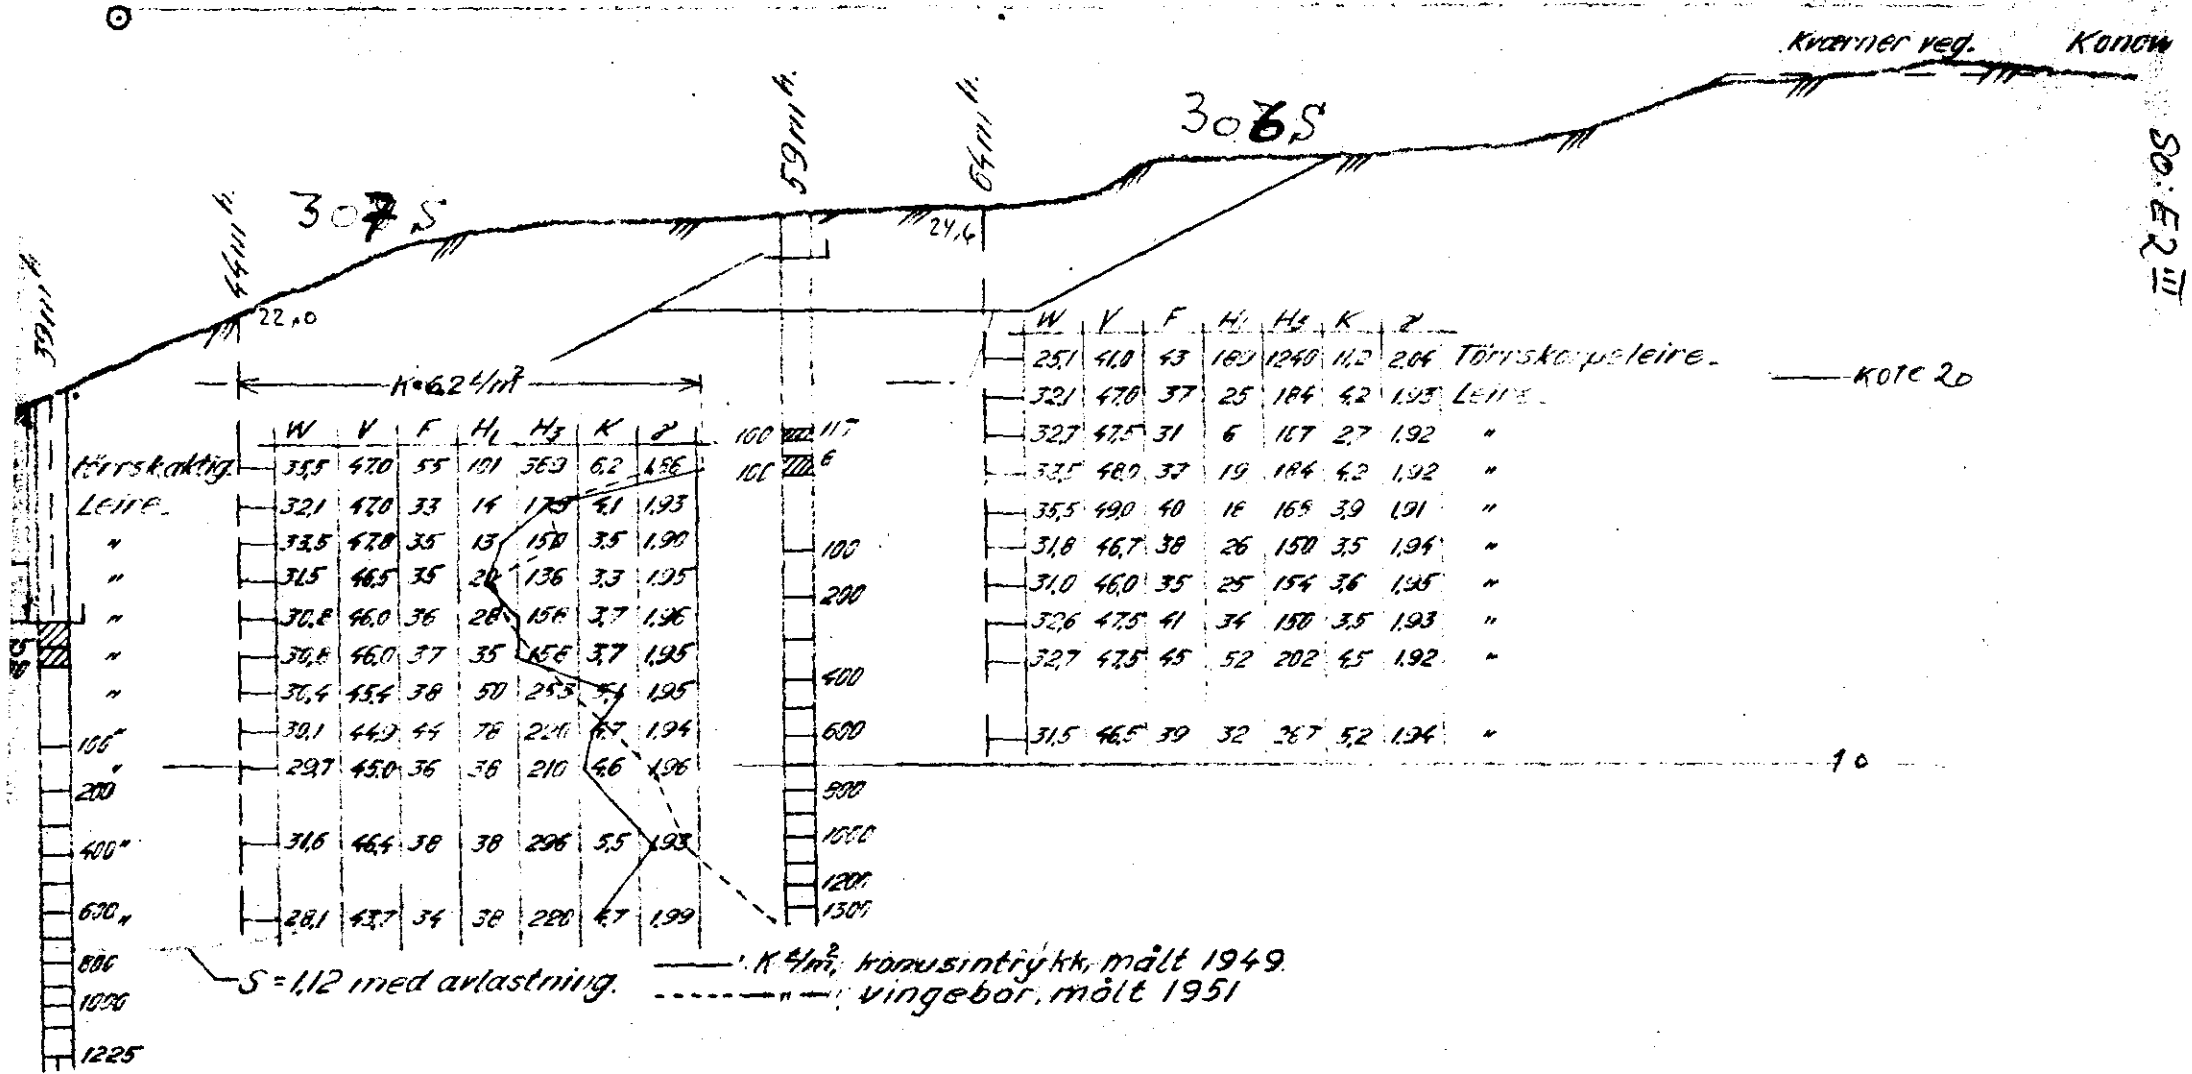 Kværner veg. Konow
SO: E2 III
306 S
307 S
59 m h.
64 m h.
44 m h.
24,6
22,0
K=6,2 t/m²
kote 20
10
W V F H₁ H₃ K γ
tørrskaktig. 35,5 47,0 55 101 369 6,2 1,86
Leire. 32,1 47,0 33 14 4,1 1,93
" 33,5 47,8 35 13 150 3,5 1,90
" 31,5 46,5 35 20 136 3,3 1,95
" 30,8 46,0 36 28 156 3,7 1,96
" 30,8 46,0 37 35 156 3,7 1,95
" 30,4 45,4 38 50 253 1,95
30,1 44,9 44 78 4,7 1,94
" 29,7 45,0 36 38 210 4,6 1,96
" 31,6 46,4 38 38 296 5,5 1,93
" 28,1 43,7 34 38 220 4,7 1,99
100
200
400
600
800
1000
1225
100 117
100 6
100
200
400
600
800
1000
1200
1300
W V F H₁ H₃ K γ
25,1 41,0 43 180 1240 11,2 2,04 Törrskorpeleire.
32,1 47,0 37 25 184 4,2 1,93 Leire.
32,7 47,5 31 6 167 2,7 1,92 "
33,5 48,0 37 19 184 4,2 1,92 "
35,5 49,0 40 18 165 3,9 1,91 "
31,8 46,7 38 26 150 3,5 1,94 "
31,0 46,0 35 25 154 3,6 1,95 "
32,6 47,5 41 34 150 3,5 1,93 "
32,7 47,5 45 52 202 4,5 1,92 "
31,5 46,5 39 32 267 5,2 1,94 "
S = 1,12 med avlastning.
K t/m², konusintrykk, målt 1949.
" ; vingebor, målt 1951